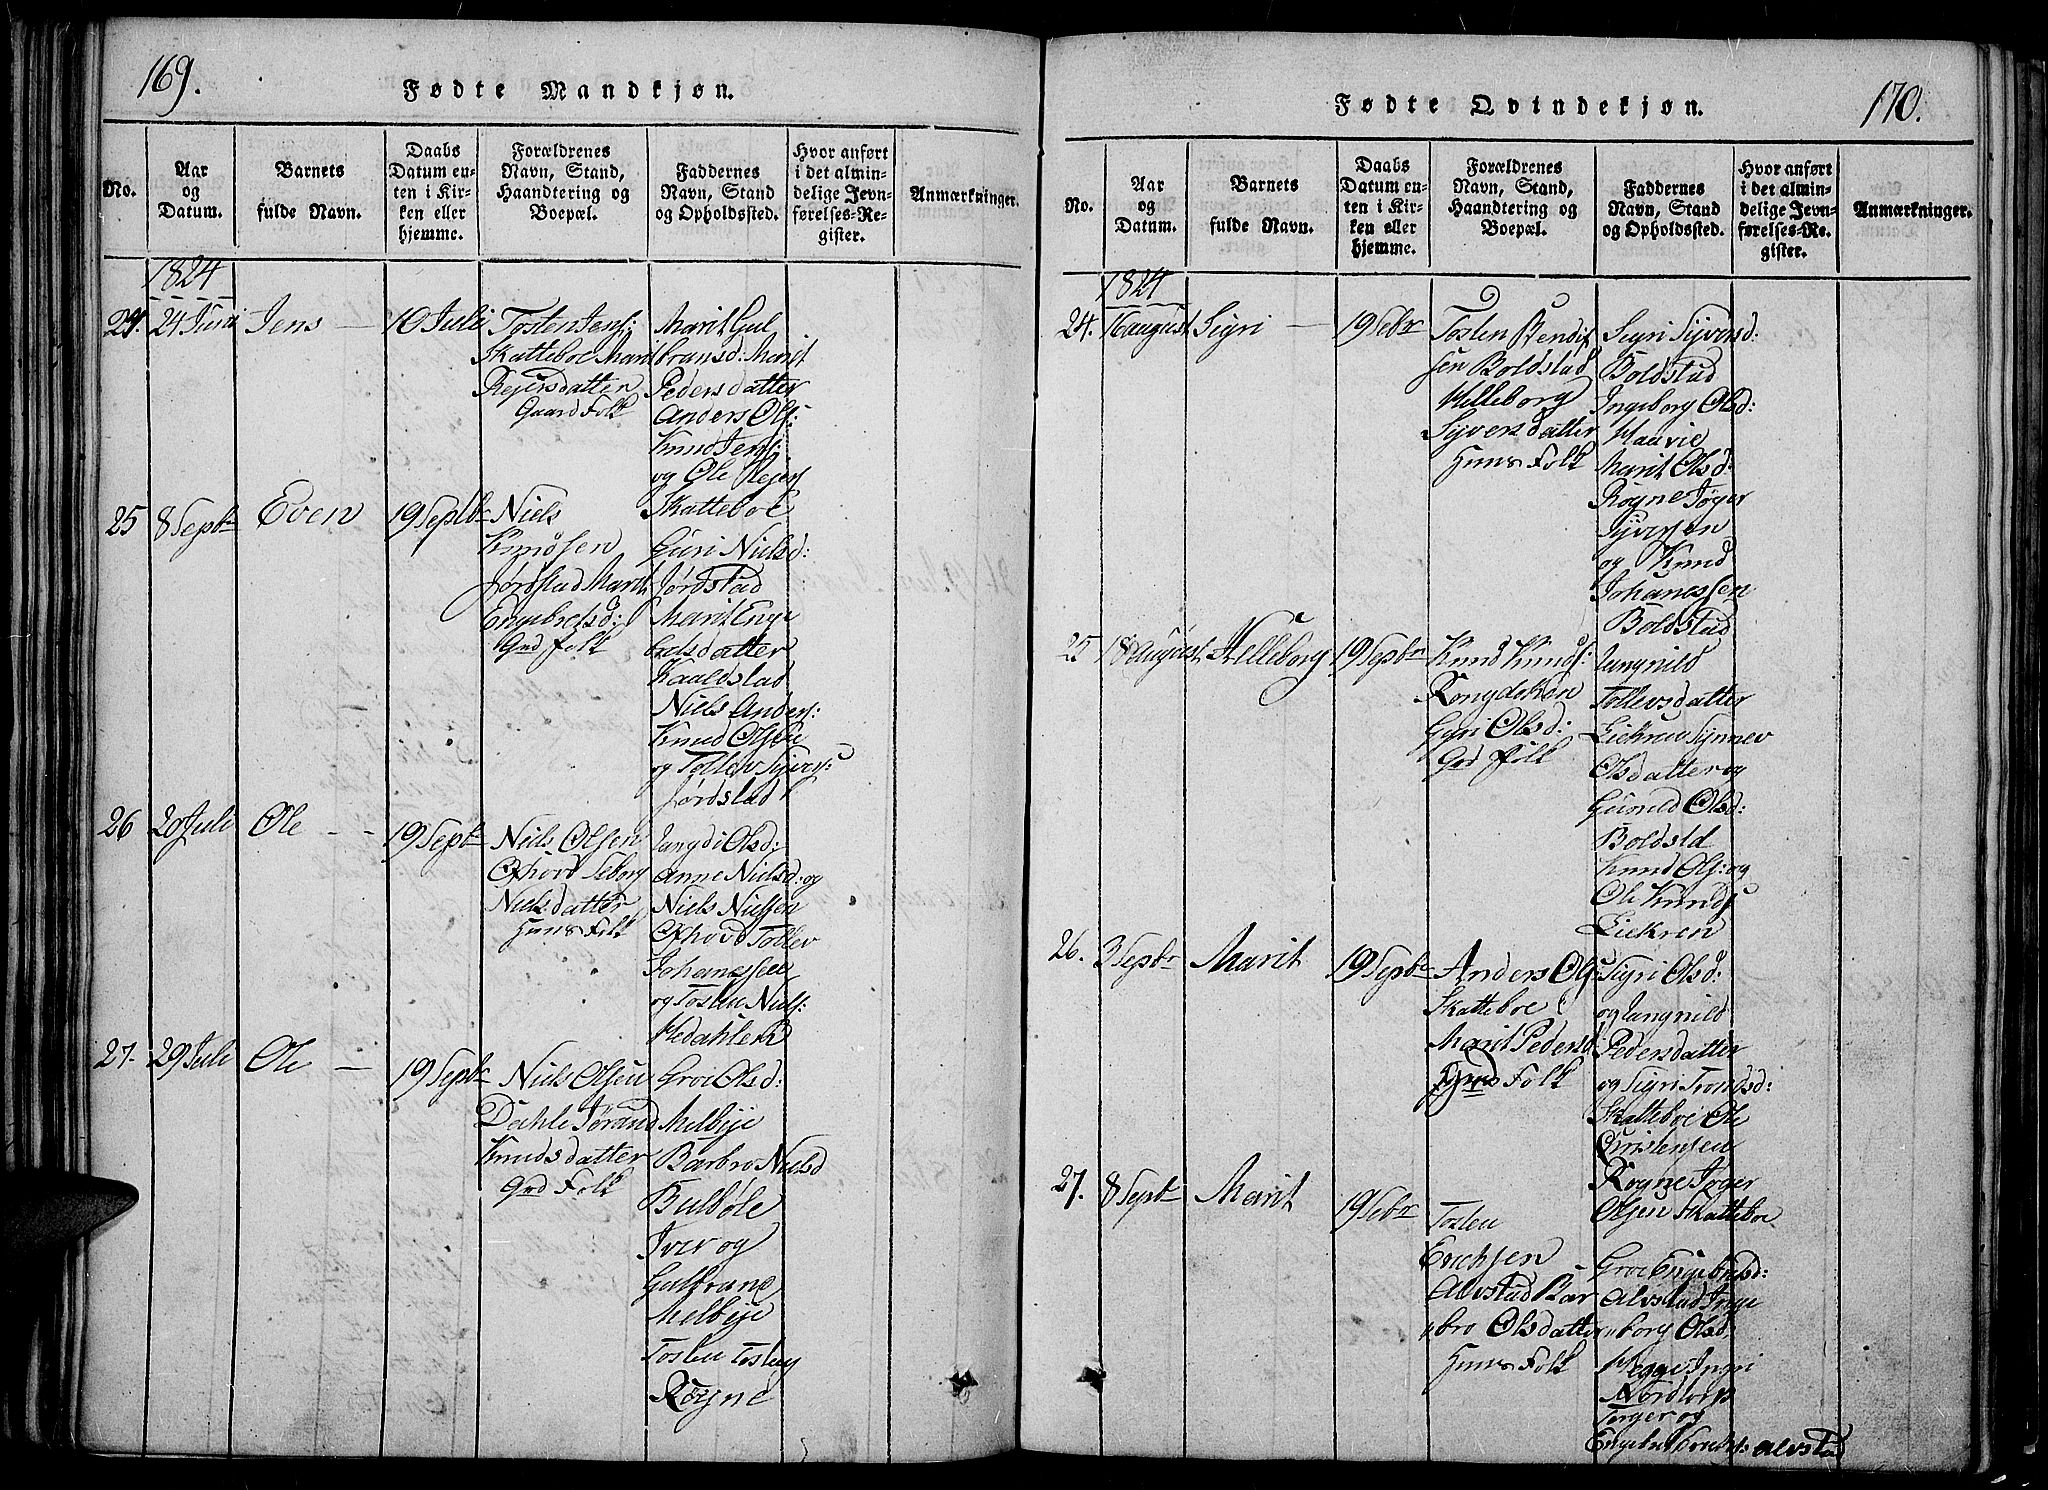 169.
Fødte Mandkjøn.
No.
Aar
og
Datum.
Barnets
fulde Navn.
Daabs
Datum en-
ten i Kir-
ken eller
hjemme.
Forældrenes
Navn, Stand,
Haandtering og
Boepæl.
Faddernes
Navn, Stand
og Opholdssted.
Hvor anført
i det almin-
delige Jevn-
førelses-Re-
gister.
Anmærkninger.
1824
24. 24 Juni Jens 10 Juli
Tosten Jens:
Skatteboe Marit
Rejersdatter
Gaard Folk
Marit Gul
bransd: Marit
Pedersdatter
Anders Ols:
Knud Jens:
og Ole Rejers
Skatteboe
25 8 Septbr Even 19 Septbr
Niels
Knudsen
Jørdstad Marit
Engebretsd:
Grd folk
Guri Nielsd:
Jørdstad
Marit Enge
bretsdatter
Kaaldstad
Niels Anders:
Knud Olsen
og Tollev Syvers:
Jørdstad
26 20 Juli Ole 19 Septbr
Niels Olsen
Ofhovd Seborg
Nielsdatter
Huus Folk
Langdi Olsd:
Anne Nielsd: og
Niels Nielsen
Ofhovd Tollev
Johanessen
og Tosten Niels:
Hedahlen
27. 29 Juli Ole 19 Septbr
Niels Olsen
Dæhle Jørand
Knudsdatter
Grd Folk
Groe Olsd:
Melbye
Barbro Nielsd
Bulbøle
Iver og
Gulbrand
Melbye
Tosten Tosten
Rogne
170.
Fødte Qvindekjøn.
No.
Aar
og
Datum.
Barnets
fulde Navn.
Daabs
Datum en-
ten i Kir-
ken eller
hjemme.
Forældrenes
Navn, Stand,
Haandtering og
Boepæl.
Faddernes
Navn, Stand
og Opholdssted.
Hvor anført
i det almin-
delige Jevn-
førelses-Re-
gister.
Anmærkninger.
1824
24. 16 august Sigri 19 Sebr
Tosten Bendix
sen Boldstad
Helleborg
Syversdatter
Huus Folk
Sigri Syversd:
Boldstad
Ingeborg Olsd:
Haavie
Marit Olsd:
Rogne Tøger
Syversen
og Knud
Johanessen
Boldstad
25 18 august Helleborg 19 Septbr
Knud Knuds:
Guri Olsd:
Grd folk
Langnild
Tollevsdatter
Liekren Synnev
Olsdatter og
Gunild Olsd:
Boldstd
Knud Ols: og
Ole Knuds
Liekren
26. 3 Septbr Marit 19 Septbr
Anders Ols
Skatteboe
Marit Pedersd
Grd Folk
Sigri Olsd:
og Langnild
Pedersdatter
og Sigri Trondsd:
Skatteboe Ole
Christensen
Rogne Tøger
Olsen Skatteboe
27. 8 Septbr Marit 19 Sebr
Tosten
Erichsen
Alvstad Bar
bro Olsdatter
Huus Folk
Groe Engebretsd:
Alvstad Inge
borg Olsd:
Hegge Ingri
Nordtorp
Torger og
Alvstad